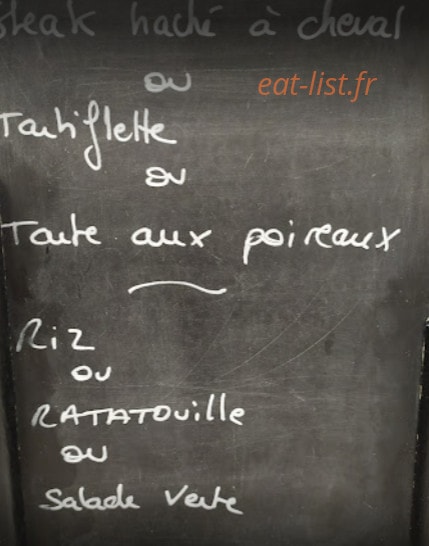 steak haché à cheval
ou
eat-list.fr
Tartiflette
ou
Tarte aux poireaux
Riz
ou
RATATOuille
ou
Salade Verte